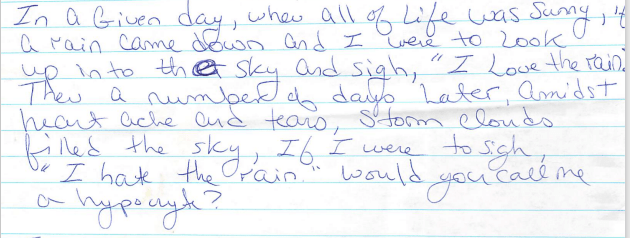 In a Given day, when all of Life was Sunny, if
a rain came down and I were to Look
up into the sky and sigh, "I Love the rain."
Then a number of days Later, amidst
heart ache and tears, Storm Clouds
filled the sky, If I were to sigh,
"I hate the rain." would you call me
a hypocryte?